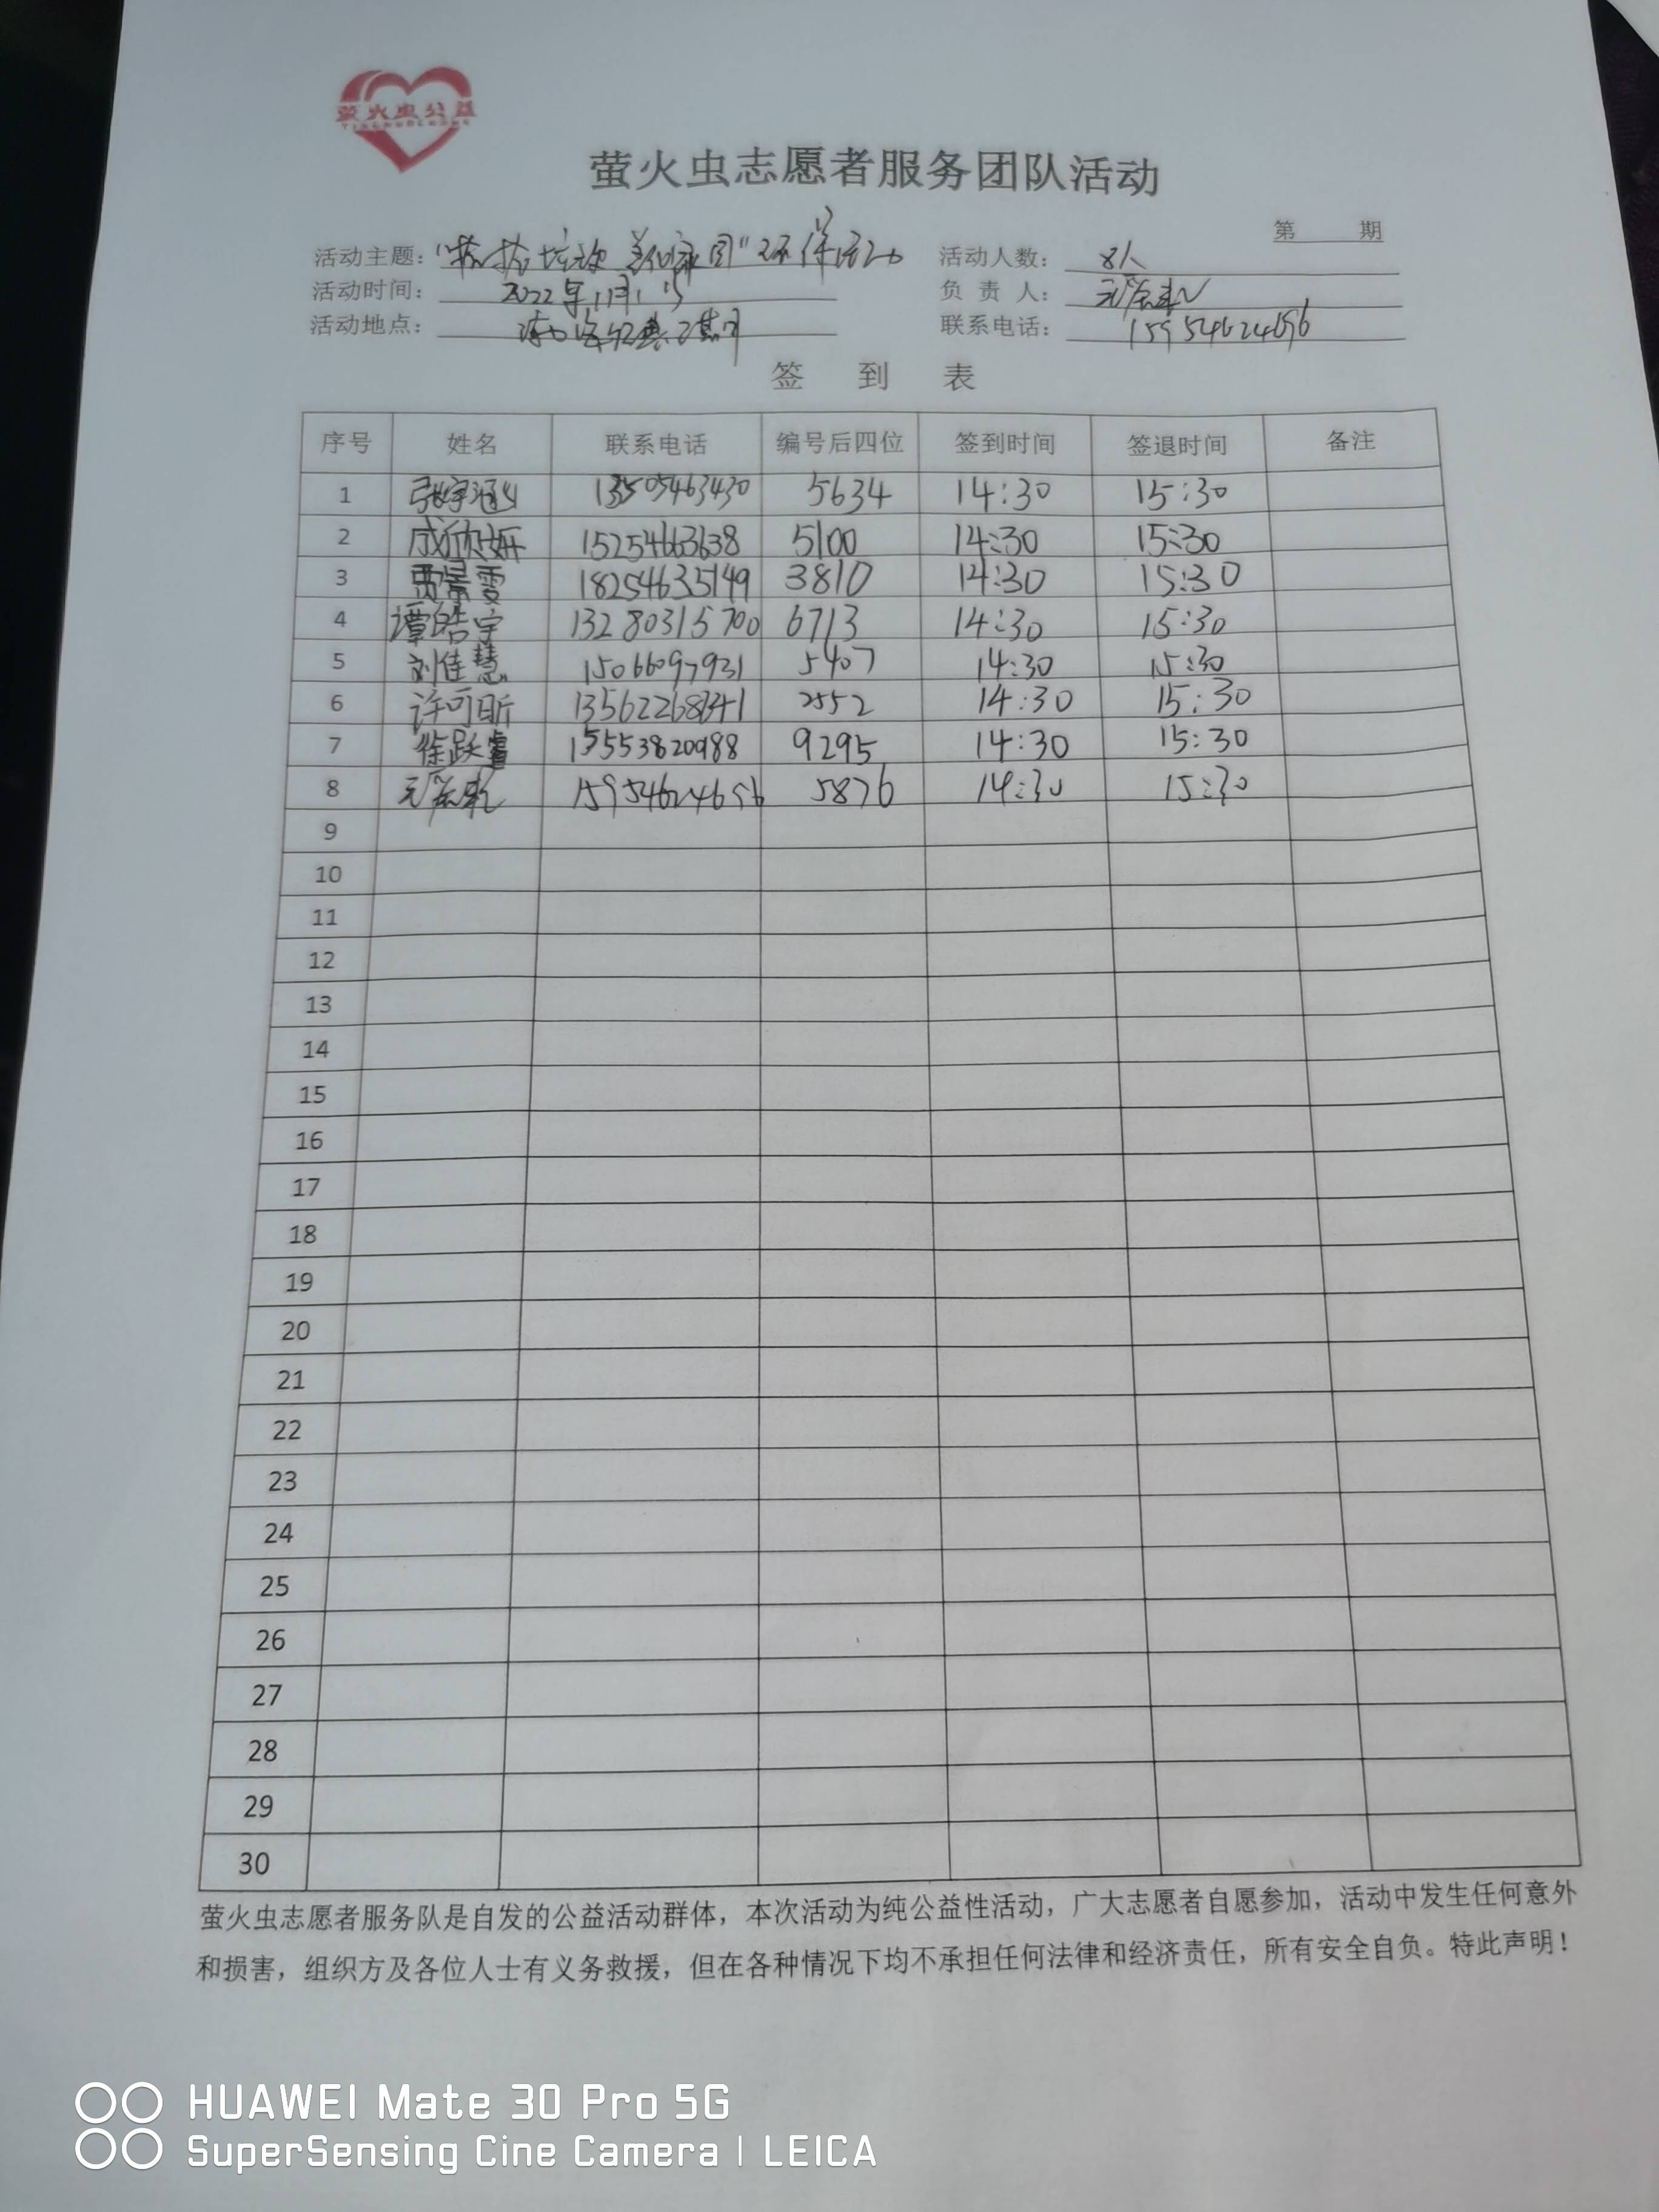 萤火虫公益
YINGHUOCHONG
萤火虫志愿者服务团队活动
第 期
活动主题： 美化家园"环保活动 活动人数： 8人
活动时间： 2022年11月 负责人：
活动地点： 联系电话： 15954624656
签 到 表
序号 姓名 联系电话 编号后四位 签到时间 签退时间 备注
1 张宇涵 13505463430 5634 14:30 15:30
2 成欣妍 15254663638 5100 14:30 15:30
3 贾景雯 18254635149 3810 14:30 15:30
4 谭皓宇 13280315700 6713 14:30 15:30
5 刘佳慧 15066097921 5407 14:30 15:30
6 许可昕 13562268341 2552 14:30 15:30
7 徐跃睿 15553820988 9295 14:30 15:30
8 15954624656 5876 14:30 15:30
9
10
11
12
13
14
15
16
17
18
19
20
21
22
23
24
25
26
27
28
29
30
萤火虫志愿者服务队是自发的公益活动群体，本次活动为纯公益性活动，广大志愿者自愿参加，活动中发生任何意外
和损害，组织方及各位人士有义务救援，但在各种情况下均不承担任何法律和经济责任，所有安全自负。特此声明！
HUAWEI Mate 30 Pro 5G
SuperSensing Cine Camera | LEICA